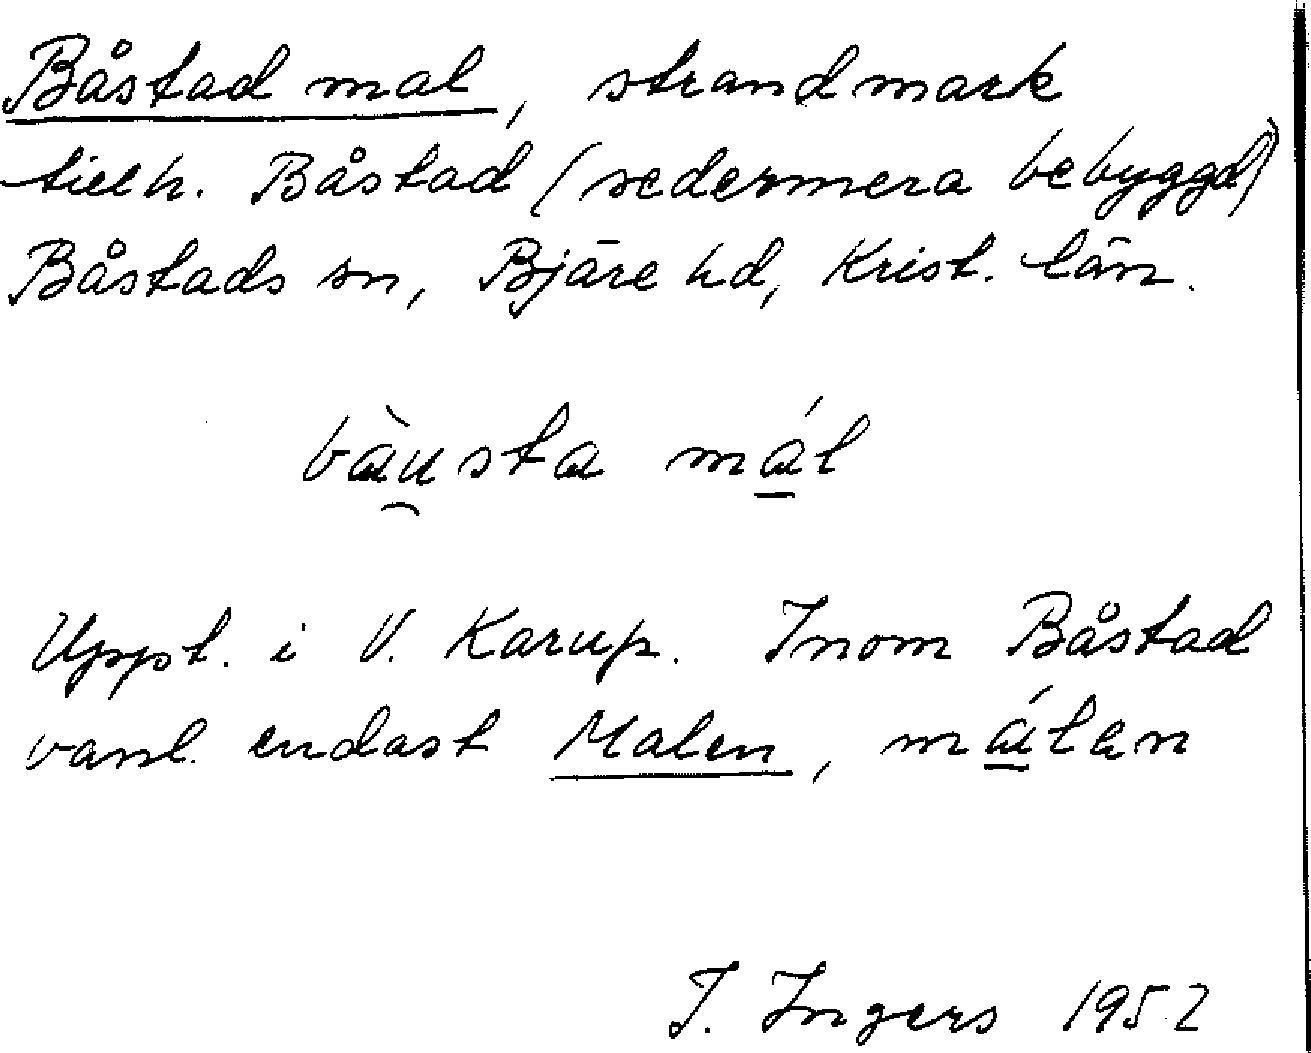 Båstad mal, strandmark
tillh. Båstad (sedermera bebyggd)
Båstads sn, Bjäre hd, Krist. län.
bàu̯sta má̱l
Uppt. i V. Karup. Inom Båstad
vanl. endast Malen, má̱len
I. Ingers 1952